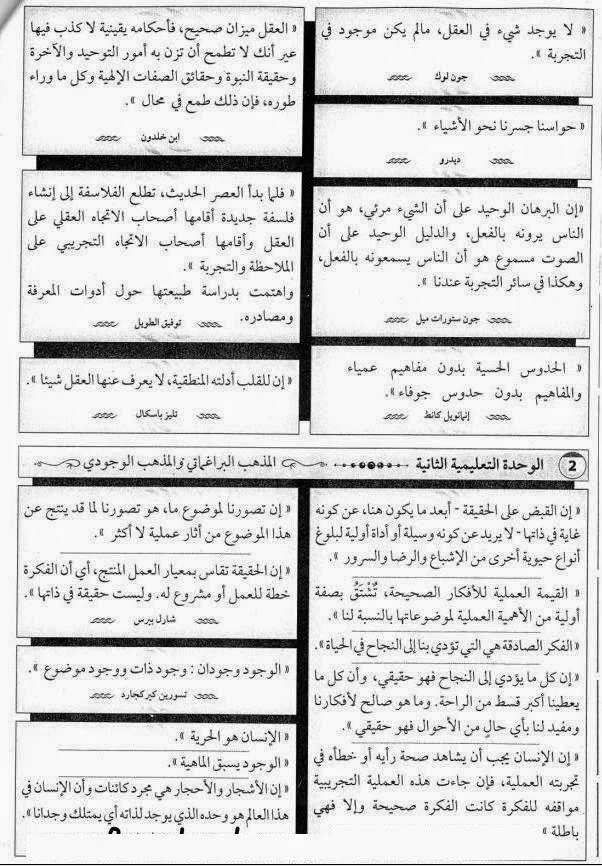 « لا يوجد شيء في العقل، مالم يكن موجود في
التجربة ».
جون لوك
« حواسنا جسرنا نحو الأشياء ».
ديدرو
«إن البرهان الوحيد على أن الشيء مرئي، هو أن
الناس يرونه بالفعل، والدليل الوحيد على أن
الصوت مسموع هو أن الناس يسمعونه بالفعل،
وهكذا في سائر التجربة عندنا ».
جون ستورات ميل
« الحدوس الحسية بدون مفاهيم عمياء
والمفاهيم بدون حدوس جوفاء».
إيمانويل كانط
« العقل ميزان صحيح، فأحكامه يقينية لا كذب فيها
عير أنك لا تطمح أن تزن به أمور التوحيد والآخرة
وحقيقة النبوة وحقائق الصفات الإلهية وكل ما وراء
طوره، فإن ذلك طمع في محال ».
ابن خلدون
« فلما بدأ العصر الحديث، تطلع الفلاسفة إلى إنشاء
فلسفة جديدة أقامها أصحاب الاتجاه العقلي على
العقل وأقامها أصحاب الاتجاه التجريبي على
الملاحظة والتجربة ».
واهتمت بدراسة طبيعتها حول أدوات المعرفة
ومصادره.
توفيق الطويل
« إن للقلب أدلته المنطقية، لا يعرف عنها العقل شيئا ».
تليز باسكال
2 الوحدة التعليمية الثانية المذهب البراغماتي والمذهب الوجودي
« إن القبض على الحقيقة - أبعد ما يكون هنا، عن كونه
غاية في ذاتها - لا يريد عن كونه وسيلة أو أداة أولية لبلوغ
أنواع حيوية أخرى من الإشباع والرضا والسرور ».
« القيمة العملية للأفكار الصحيحة، تُشْتَقُّ بصفة
أولية من الأهمية العملية لموضوعاتها بالنسبة لنا ».
« الفكر الصادقة هي التي تؤدي بنا إلى النجاح في الحياة».
« إن كل ما يؤدي إلى النجاح فهو حقيقي، وأن كل ما
يعطينا أكبر قسط من الراحة. وما هو صالح لأفكارنا
ومفيد لنا بأي حالٍ من الأحوال فهو حقيقي ».
« إن الإنسان يجب أن يشاهد صحة رأيه أو خطأه في
تجربته العملية، فإن جاءت هذه العملية التجريبية
موافقه للفكرة كانت الفكرة صحيحة وإلا فهي
باطلة »
« إن تصورنا لموضوع ما، هو تصورنا لما قد ينتج عن
هذا الموضوع من أثار عملية لا أكثر ».
« إن الحقيقة تقاس بمعيار العمل المنتج، أي أن الفكرة
خطة للعمل أو مشروع له. وليست حقيقة في ذاتها ».
شارل بيرس
« الوجود وجودان : وجود ذات ووجود موضوع ».
تسورين كيركجارد
« الإنسان هو الحرية ».
« الوجود يسبق الماهية ».
« إن الأشجار والأحجار هي مجرد كائنات وأن الإنسان في
هذا العالم هو وحده الذي يوجد لذاته أي يمتلك وجدانا ».